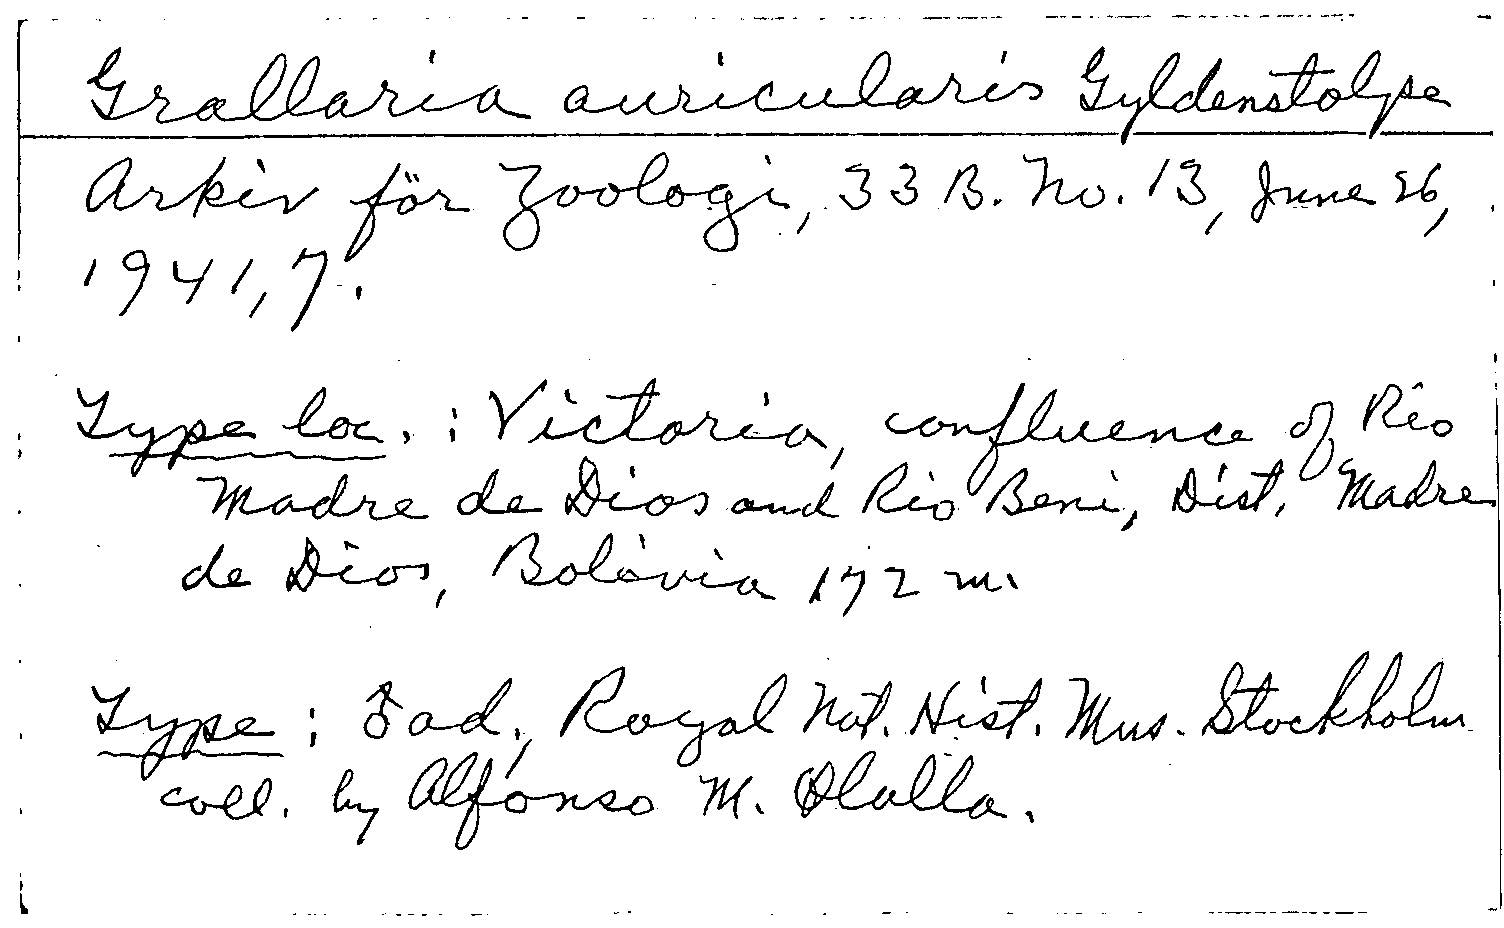 Grallaria auricularis Gyldenstolpe
Arkiv för Zoologi, 33 B. No. 13, June 26,
1941, 7.
Type loc. : Victoria, confluence of Rio
Madre de Dios and Rio Beni, Dist. Madre
de Dios, Bolivia 172 m.
Type : ♂ ad., Royal Nat. Hist. Mus. Stockholm
coll. by Alfonso M. Olalla.